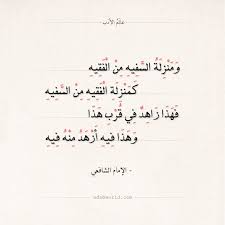 عالم الأدب
وَمَنْزِلَةُ السَّفِيهِ مِنَ الْفَقِيهِ
كَمَنْزِلَةِ الْفَقِيهِ مِنَ السَّفِيهِ
فَهَذَا زَاهِدٌ فِي قُرْبِ هَذَا
وَهَذَا فِيهِ أَزْهَدُ مِنْهُ فِيهِ
- الإمام الشافعي -
adabworld.com